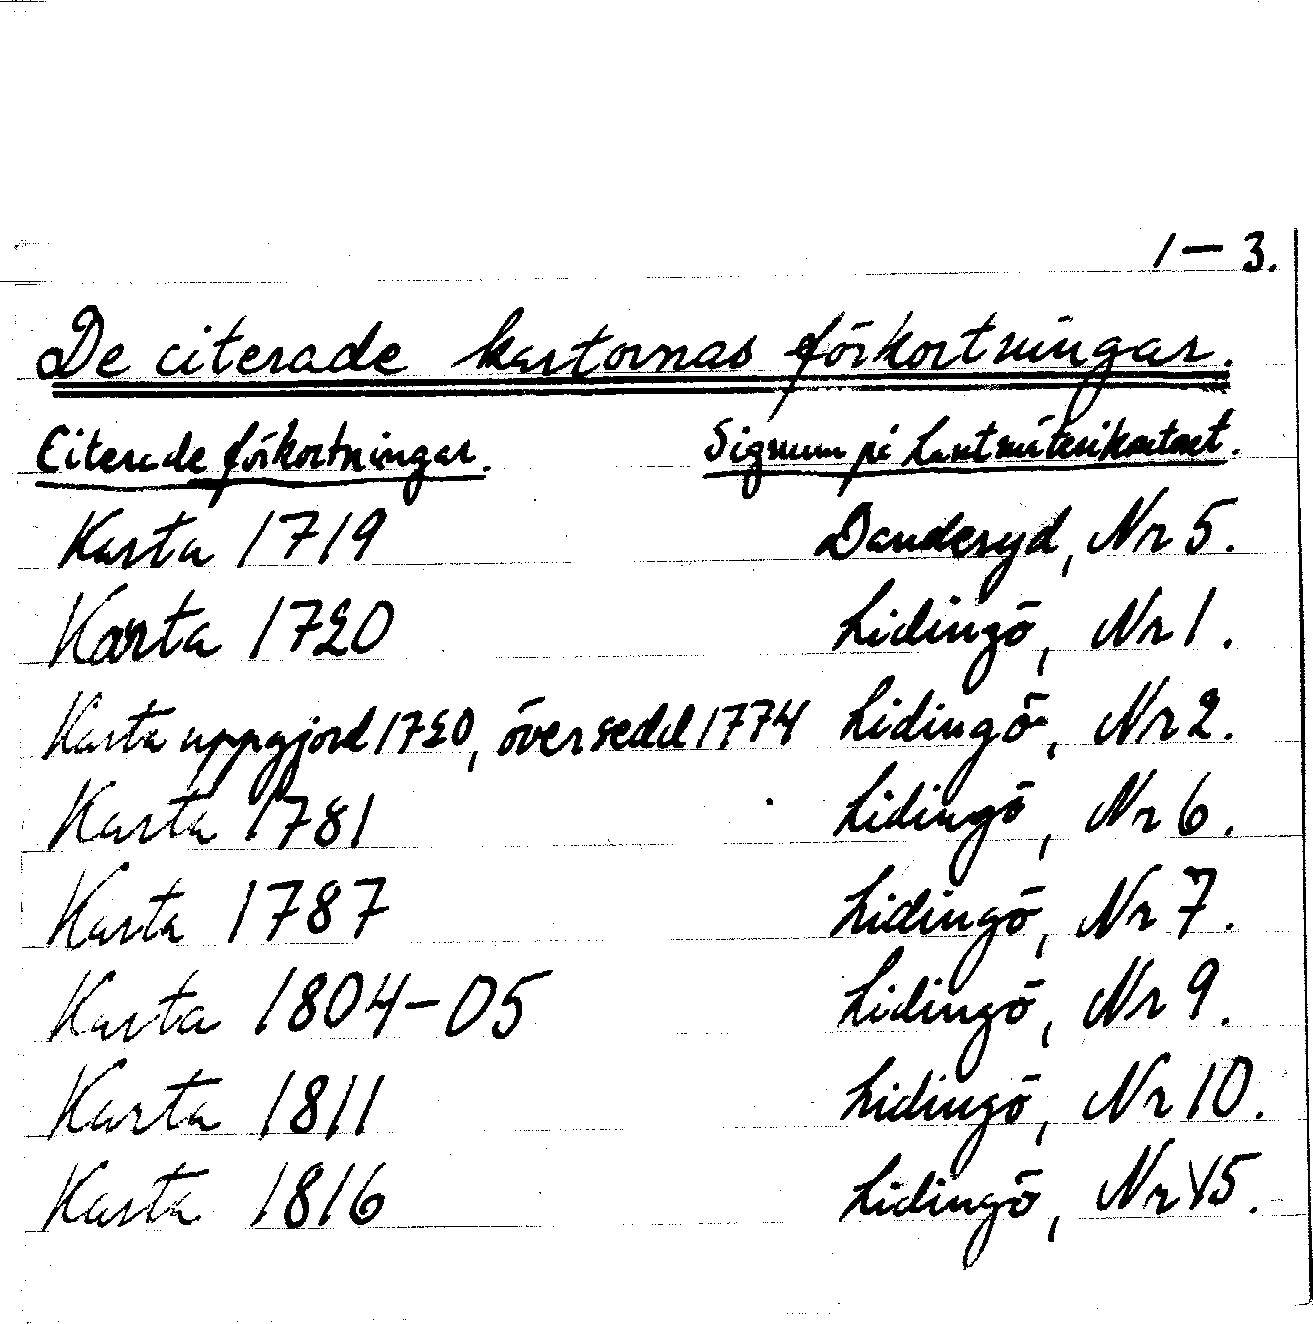 1 – 3.
De citerade kartornas förkortningar.
Citerade förkortningar. Signum på Lantmäterikontoret.
Karta 1719 Danderyd, Nr 5.
Karta 1720 Lidingö, Nr 1.
Karta uppgjord 1720, översedd 1774 Lidingö, Nr 2.
Karta 1781 Lidingö, Nr 6.
Karta 1787 Lidingö, Nr 7.
Karta 1804–05 Lidingö, Nr 9.
Karta 1811 Lidingö, Nr 10.
Karta 1816 Lidingö, Nr 15.